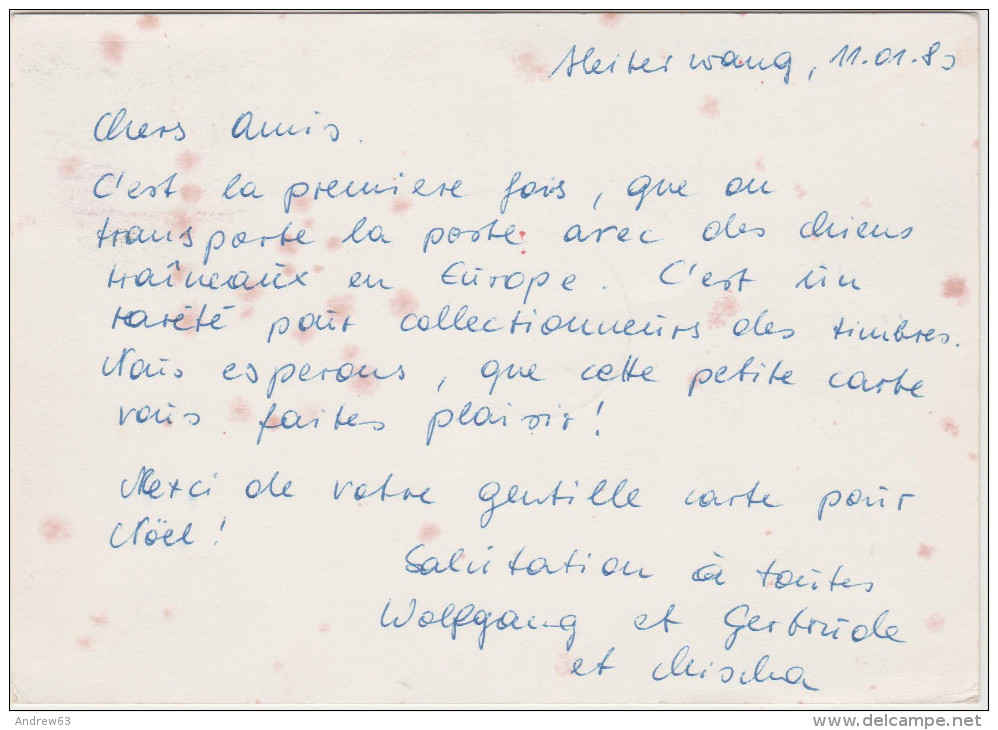 Heiterwang, 11.01.83
Chers Amis.
C'est la premiere fois, que on
transporte la poste avec des chiens
traîneaux en Europe. C'est un
rarété pour collectionneurs des timbres.
Nous esperons, que cette petite carte
vous faites plaisir!
Merci de votre gentille carte pour
Nöel!
Salutation à toutes
Wolfgang et Gertrude
et Mischa
Andrew63
www.delcampe.net